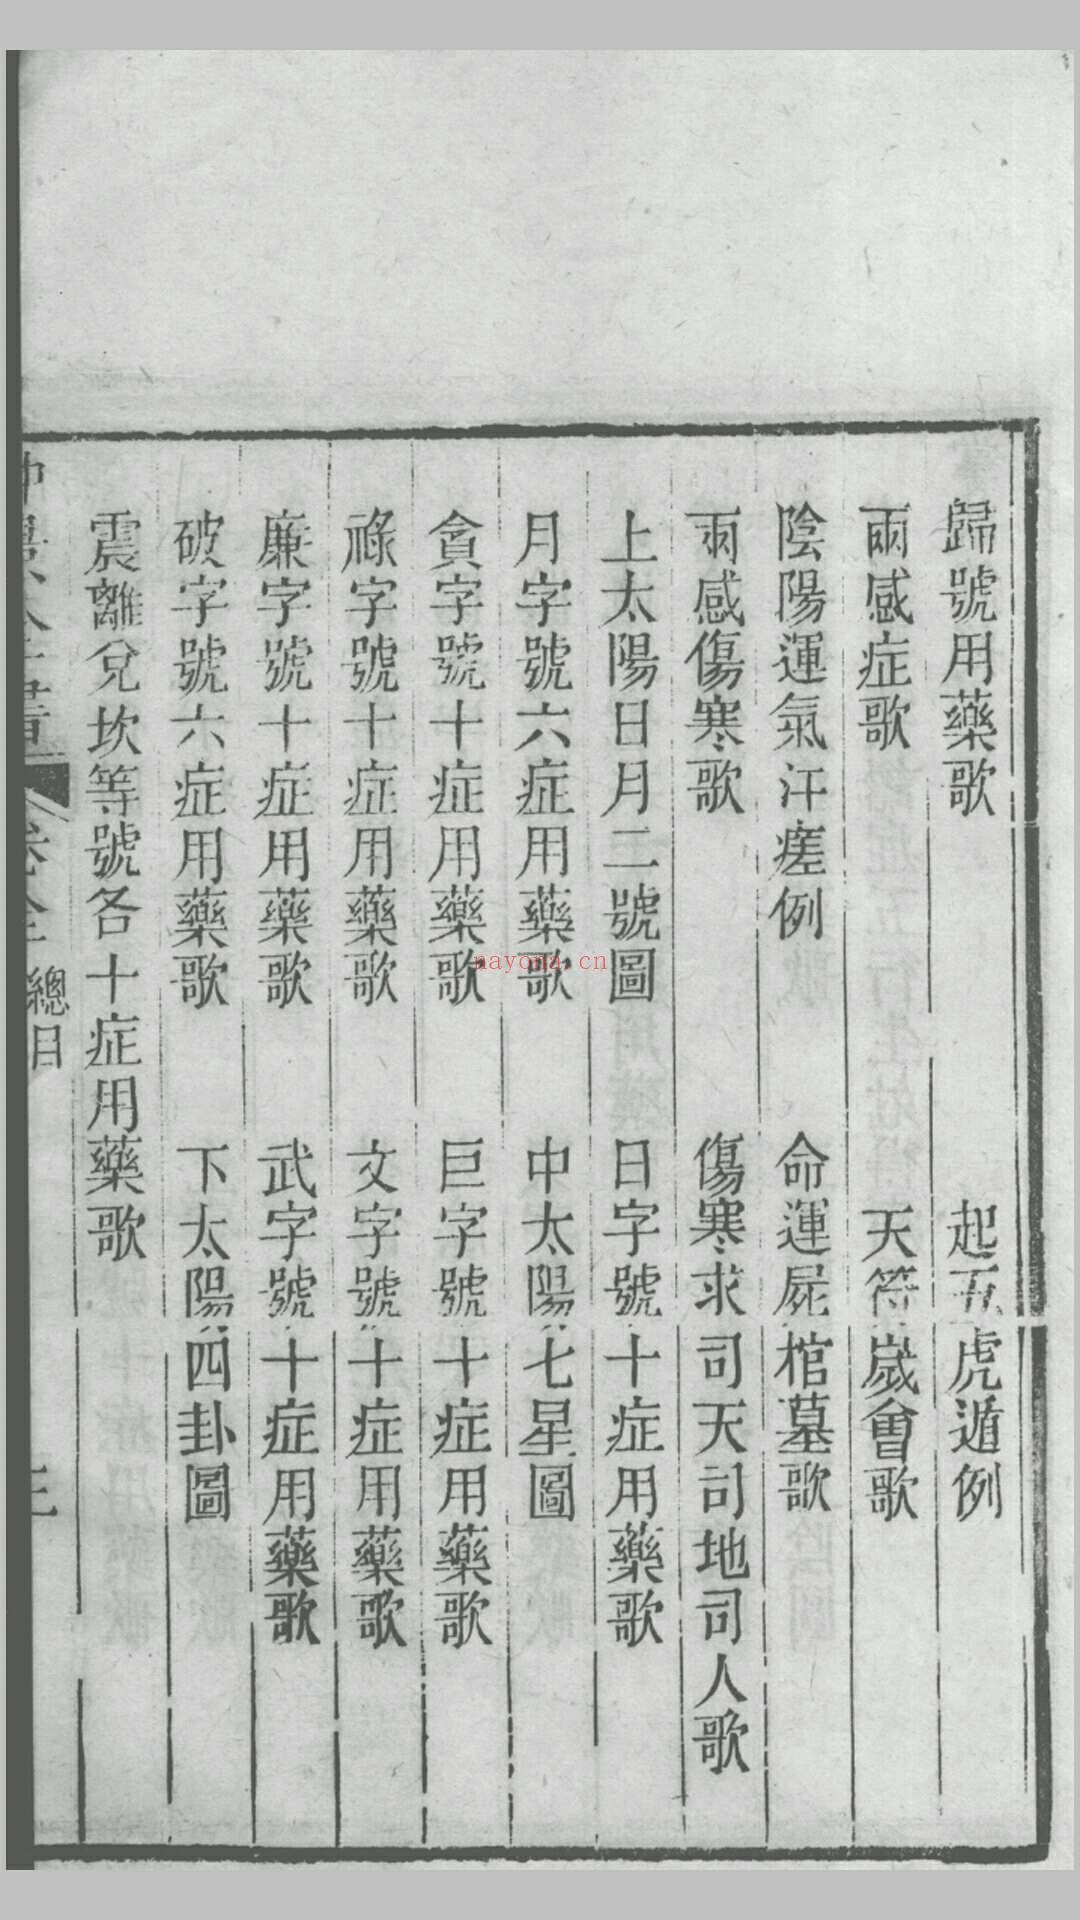 歸號用藥歌　起五虎遁例
兩感症歌　天符歲會歌
陰陽運氣汗瘥例　命運屍棺墓歌
兩感傷寒歌　傷寒求司天司地司人歌
上太陽日月二號圖　日字號十症用藥歌
月字號六症用藥歌　中太陽七星圖
貪字號十症用藥歌　巨字號十症用藥歌
祿字號十症用藥歌　文字號十症用藥歌
廉字號十症用藥歌　武字號十症用藥歌
破字號六症用藥歌　下太陽四卦圖
震離兌坎等號各十症用藥歌
總目
nayona.cn